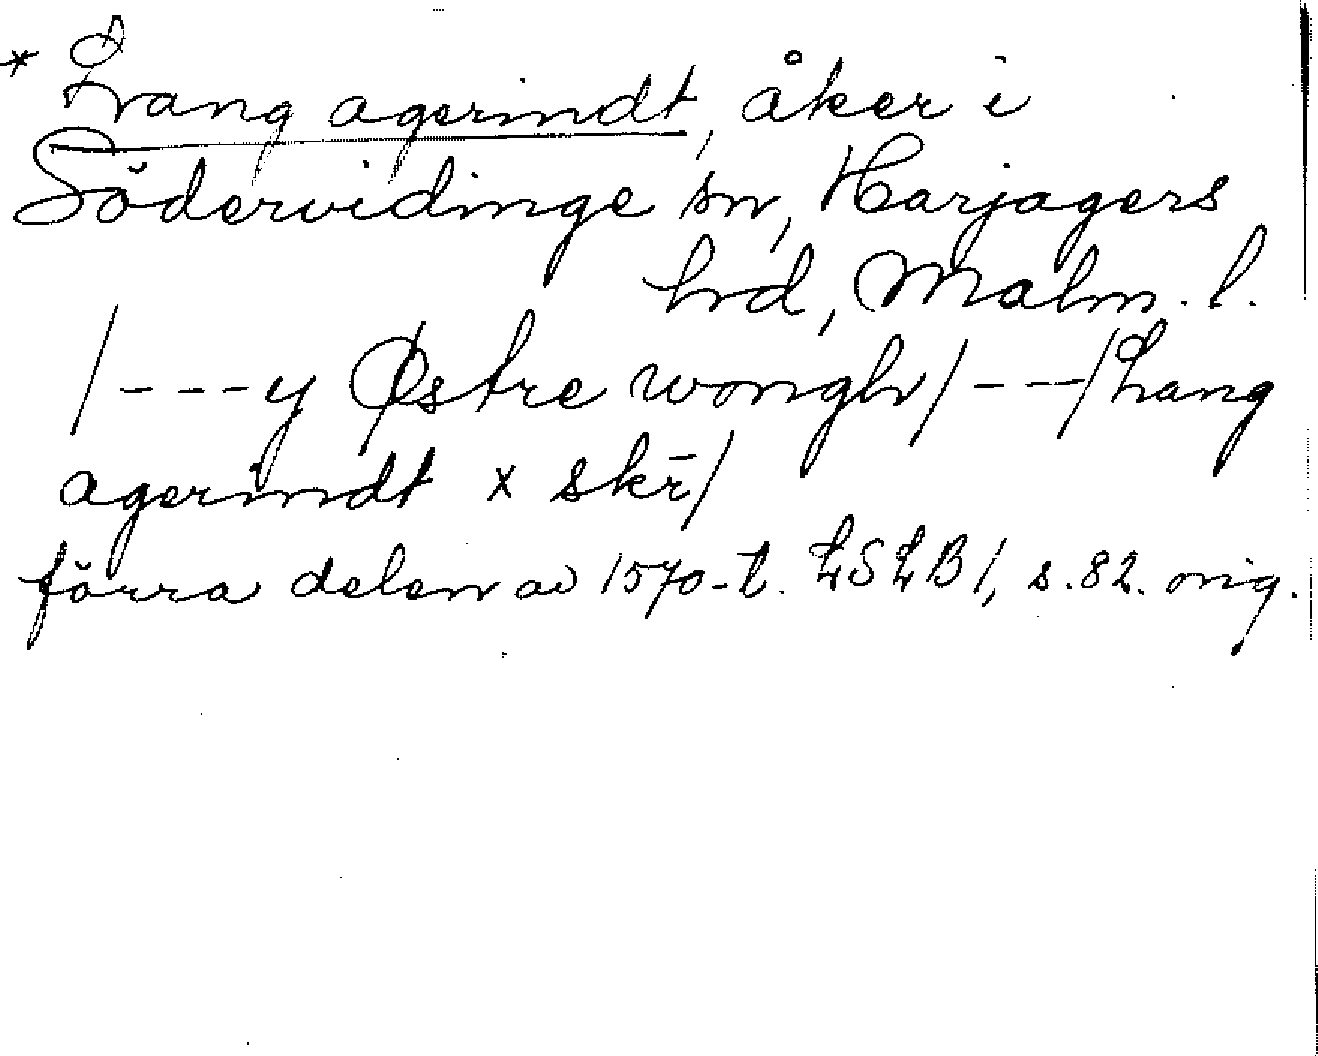 * Lang agerindt, åker i
Södervidinge sn, Harjagers
hrd, Malm. l.
/---y Østre wongh/---/Lang
agerindt x skr̄/
förra delen av 1570-t. LSLB1, s. 82. orig.